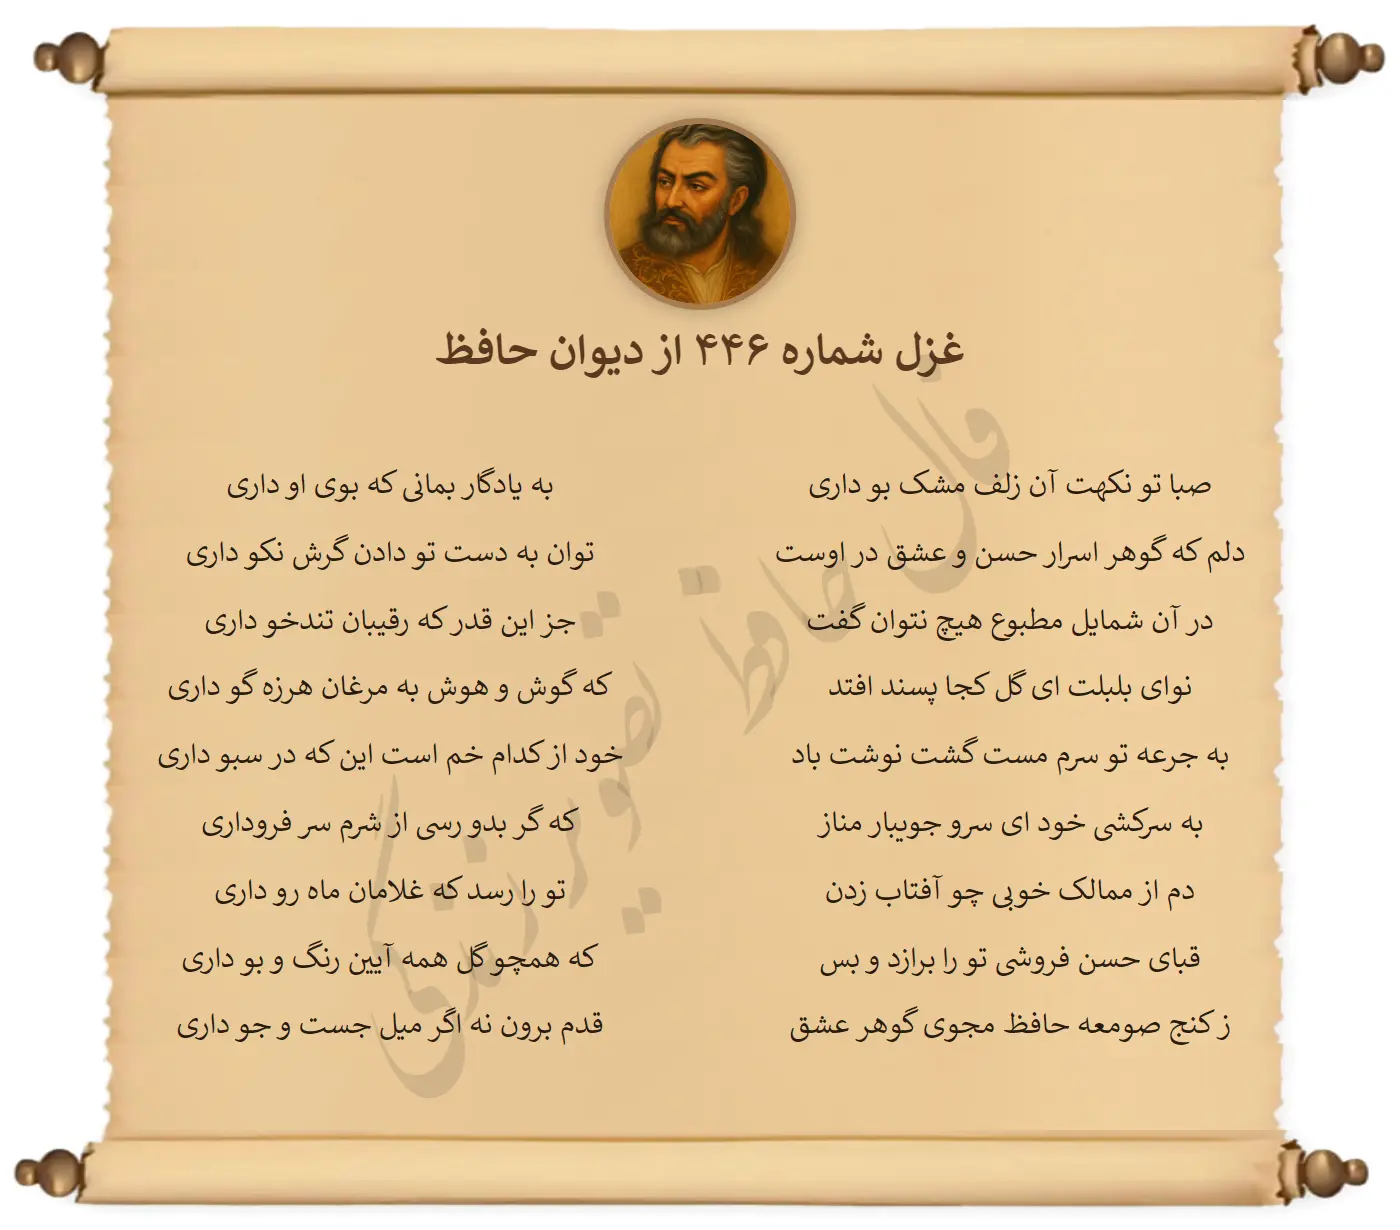 غزل شماره ۴۴۶ از دیوان حافظ
صبا تو نکهت آن زلف مشک بو داری
به یادگار بمانی که بوی او داری
دلم که گوهر اسرار حسن و عشق در اوست
توان به دست تو دادن گرش نکو داری
در آن شمایل مطبوع هیچ نتوان گفت
جز این قدر که رقیبان تندخو داری
نوای بلبلت ای گل کجا پسند افتد
که گوش و هوش به مرغان هرزه گو داری
به جرعه تو سرم مست گشت نوشت باد
خود از کدام خم است این که در سبو داری
به سرکشی خود ای سرو جویبار مناز
که گر بدو رسی از شرم سر فروداری
دم از ممالک خوبی چو آفتاب زدن
تو را رسد که غلامان ماه رو داری
قبای حسن فروشی تو را برازد و بس
که همچو گل همه آیین رنگ و بو داری
ز کنج صومعه حافظ مجوی گوهر عشق
قدم برون نه اگر میل جست و جو داری
فال حافظ تصویر زندگی